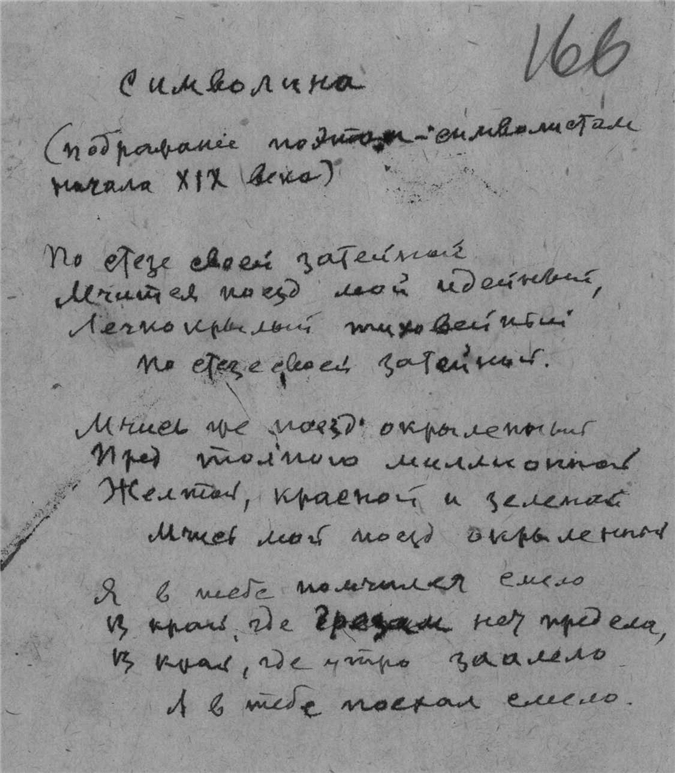 166
Символина
(подражание поэтам-символистам
начала XIX века)
По стезе своей затейной
Мчится поезд мой идейный,
Легкокрылый тиховейный
По стезе своей затейной.
Мчись же поезд окрыленный
Пред толпою миллионной
Желтой, красной и зеленой
Мчись мой поезд окрыленный
Я в тебе помчился смело
В край, где грезам нет предела,
В край, где утро заалело
Я в тебе поехал смело.